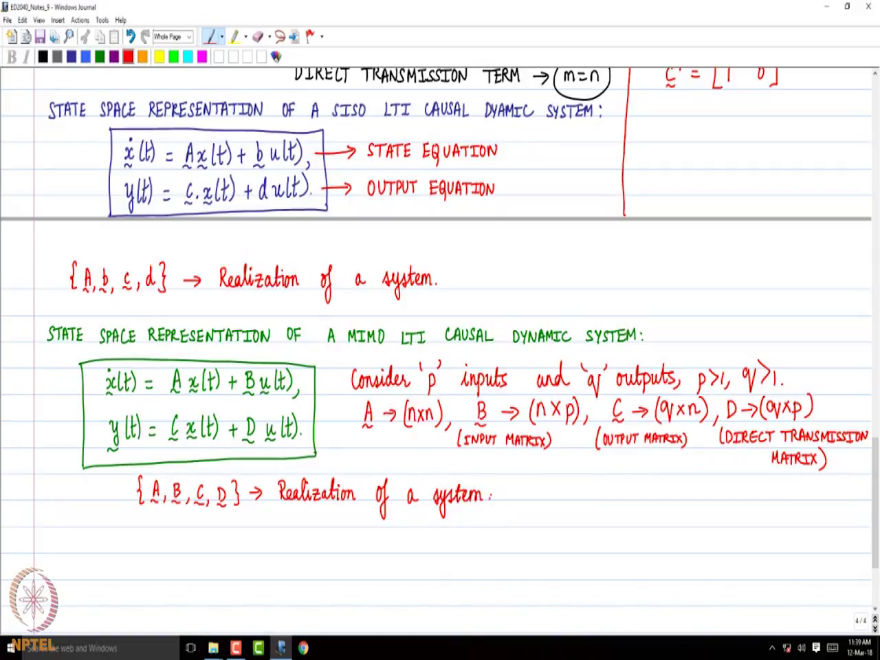 ED2040_Notes_9 - Windows Journal
File Edit View Insert Actions Tools Help
Whole Page
B I
DIRECT TRANSMISSION TERM → (m=n)
C = [1 0]
STATE SPACE REPRESENTATION OF A SISO LTI CAUSAL DYAMIC SYSTEM:
ẋ(t) = A x(t) + b u(t), → STATE EQUATION
y(t) = c. x(t) + d u(t). → OUTPUT EQUATION
{A, b, c, d} → Realization of a system.
STATE SPACE REPRESENTATION OF A MIMO LTI CAUSAL DYNAMIC SYSTEM:
ẋ(t) = A x(t) + B u(t),
y(t) = C x(t) + D u(t).
Consider 'p' inputs and 'q' outputs, p>1, q>1.
A → (n×n), B → (n×p), C → (q×n), D → (q×p)
(INPUT MATRIX) (OUTPUT MATRIX) (DIRECT TRANSMISSION MATRIX)
{A, B, C, D} → Realization of a system.
4 / 4
NPTEL
the web and Windows
11:39 AM
12-Mar-18